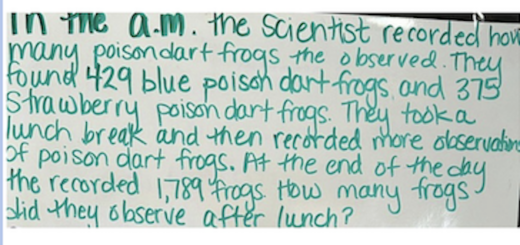 In the a.m. the Scientist recorded how
many poison dart frogs the observed. They
found 429 blue poison dart frogs and 375
Strawberry poison dart frogs. They took a
lunch break and then recorded more observations
of poison dart frogs. At the end of the day
the recorded 1,789 frogs. How many frogs
did they observe after lunch?